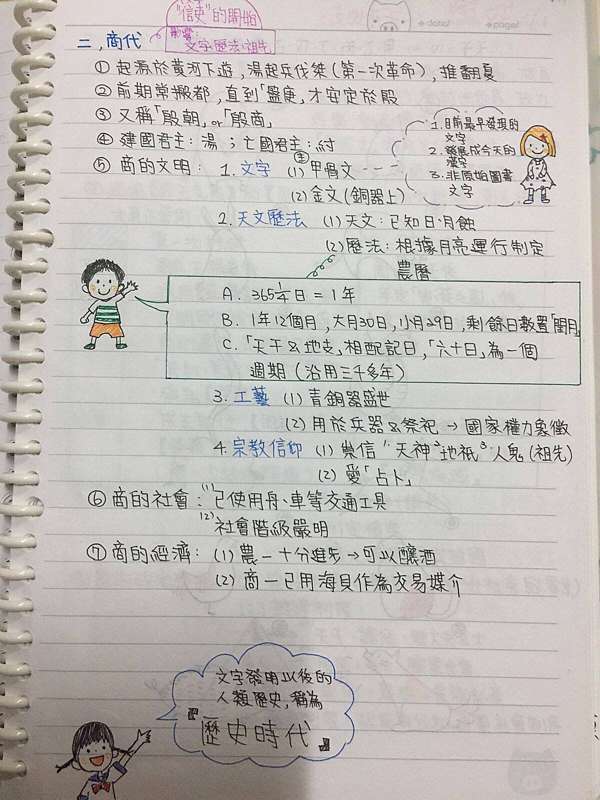 "信史"的開始
影響:
文字.歷法.祖先
date:
page:
二,商代
① 起源於黃河下遊,湯起兵伐桀(第一次革命),推翻夏
② 前期常搬都,直到「盤庚」才安定於殷
③ 又稱「殷朝」or「殷商」
④ 建國君主:湯 ; 亡國君主:紂
⑤ 商的文明: 1.文字 (1)甲骨文
主
1.目前最早發現的
文字
2.發展成今天的
漢字
3.非原始圖畫
文字
(2)金文(銅器上)
2.天文歷法 (1)天文:已知日.月蝕
(2)歷法:根據月亮運行制定
農曆
A. 365¼日=1年
B. 1年12個月,大月30日,小月29日,剩餘日數置「閏月」
C.「天干&地支」相配記日,「六十日」為一個
週期(沿用三千多年)
3.工藝 (1)青銅器盛世
(2)用於兵器&祭祀→國家權力象徵
4.宗教信仰 (1)崇信 1天神2地祇3人鬼(祖先)
(2)愛「占卜」
⑥ 商的社會:(1)已使用舟、車等交通工具
(2)社會階級嚴明
⑦ 商的經濟: (1)農—十分進步→可以釀酒
(2)商—已用海貝作為交易媒介
文字發明以後的
人類歷史,稱為
『歷史時代』